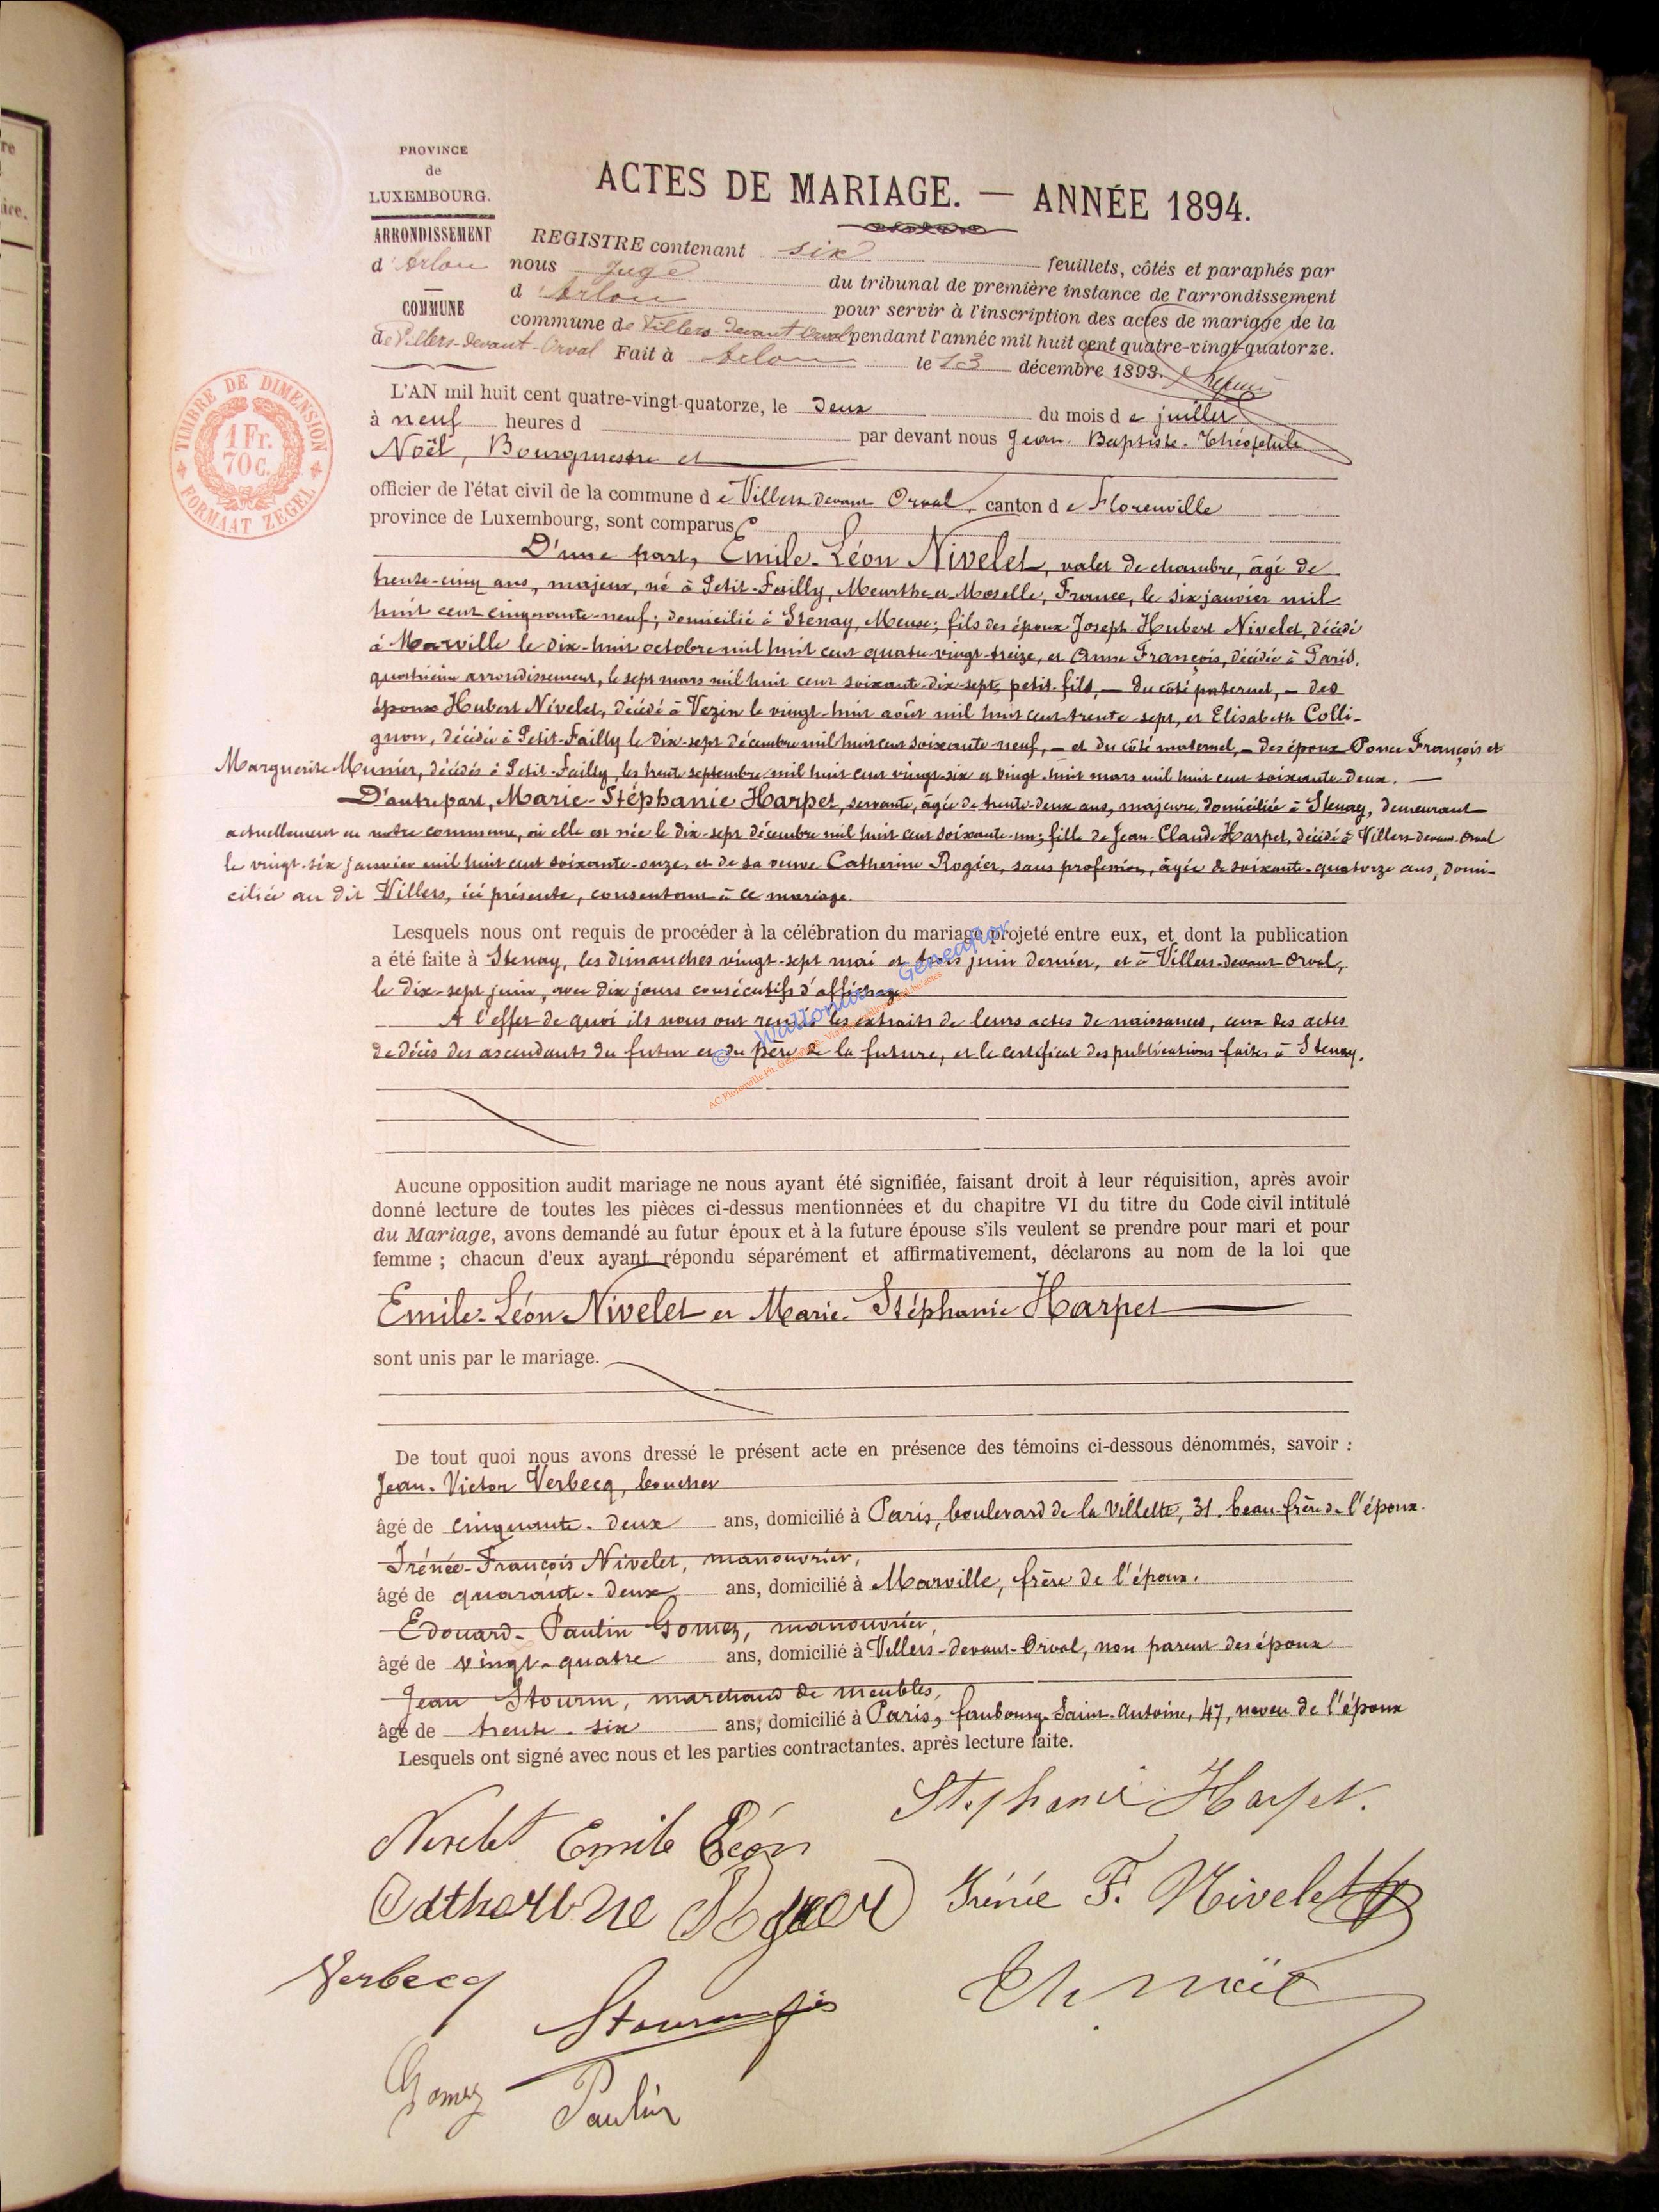 re
aire.
PROVINCE
de
LUXEMBOURG.
ARRONDISSEMENT
d'Arlon
COMMUNE
de Villers-devant-Orval
ACTES DE MARIAGE. — ANNÉE 1894.
REGISTRE contenant six feuillets, côtés et paraphés par
nous Juge du tribunal de première instance de l'arrondissement
d'Arlon pour servir à l'inscription des actes de mariage de la
commune de Villers-devant-Orval pendant l'année mil huit cent quatre-vingt-quatorze.
Fait à Arlon le 13 décembre 1893.
TIMBRE DE DIMENSION
1 Fr.
70 C.
FORMAAT ZEGEL
L'AN mil huit cent quatre-vingt-quatorze, le deux du mois de juillet
à neuf heures d par devant nous Jean-Baptiste-Théophile
Noël, Bourgmestre et
officier de l'état civil de la commune de Villers devant Orval, canton de Florenville
province de Luxembourg, sont comparus
D'une part, Emile-Léon Nivelet, valet de chambre, âgé de
trente-cinq ans, majeur, né à Petit-Failly, Meurthe et Moselle, France, le six janvier mil
huit cent cinquante-neuf; domicilié à Stenay, Meuse; fils des époux Joseph Hubert Nivelet, décédé
à Marville le dix-huit octobre mil huit cent quatre-vingt-treize, et Anne François, décédée à Paris,
quatrième arrondissement, le sept mars mil huit cent soixante-dix-sept; petit-fils, — du côté paternel, — des
époux Hubert Nivelet, décédé à Vezin le vingt-huit août mil huit cent trente-sept, et Elisabeth Colli-
gnon, décédée à Petit-Failly le dix-sept décembre mil huit cent soixante-neuf, — et du côté maternel, — des époux Ponce François et
Marguerite Munier, décédés à Petit-Failly, les trente septembre mil huit cent vingt-six et vingt-huit mars mil huit cent soixante-deux. —
D'autre part, Marie-Stéphanie Harpet, servante, âgée de trente-deux ans, majeure, domiciliée à Stenay, demeurant
actuellement en notre commune, où elle est née le dix-sept décembre mil huit cent soixante-un; fille de Jean-Claude Harpet, décédé à Villers devant Orval
le vingt-six janvier mil huit cent soixante-onze, et de sa veuve Catherine Rogier, sans profession, âgée de soixante-quatorze ans, domi-
ciliée au dit Villers, ici présente, consentant à ce mariage.
Lesquels nous ont requis de procéder à la célébration du mariage projeté entre eux, et dont la publication
a été faite à Stenay, les dimanches vingt-sept mai et trois juin dernier, et à Villers-devant-Orval,
le dix-sept juin, avec dix jours consécutifs d'affichage.
A l'effet de quoi ils nous ont remis les extraits de leurs actes de naissances, ceux des actes
de décès des ascendants du futur et du père de la future, et le certificat des publications faites à Stenay.
© Wallonia Geneaflor
Aucune opposition audit mariage ne nous ayant été signifiée, faisant droit à leur réquisition, après avoir
donné lecture de toutes les pièces ci-dessus mentionnées et du chapitre VI du titre du Code civil intitulé
du Mariage, avons demandé au futur époux et à la future épouse s'ils veulent se prendre pour mari et pour
femme ; chacun d'eux ayant répondu séparément et affirmativement, déclarons au nom de la loi que
Emile-Léon Nivelet et Marie-Stéphanie Harpet
sont unis par le mariage.
De tout quoi nous avons dressé le présent acte en présence des témoins ci-dessous dénommés, savoir :
Jean-Victor Verbecq, boucher
âgé de cinquante-deux ans, domicilié à Paris, boulevard de la Villette, 31. beau-frère de l'époux.
Irénée-François Nivelet, manouvrier,
âgé de quarante-deux ans, domicilié à Marville, frère de l'époux.
Edouard-Paulin Gomez, manouvrier,
âgé de vingt-quatre ans, domicilié à Villers-devant-Orval, non parent des époux
Jean Stourm, marchand de meubles,
âgé de trente-six ans, domicilié à Paris, faubourg Saint-Antoine, 47, neveu de l'époux
Lesquels ont signé avec nous et les parties contractantes, après lecture faite.
Stephanie Harpet.
Nivelet Emile Léon
Catherine Rogier
Irénée F. Nivelet
Verbecq
Stourm
Th Noël
Gomez Paulin